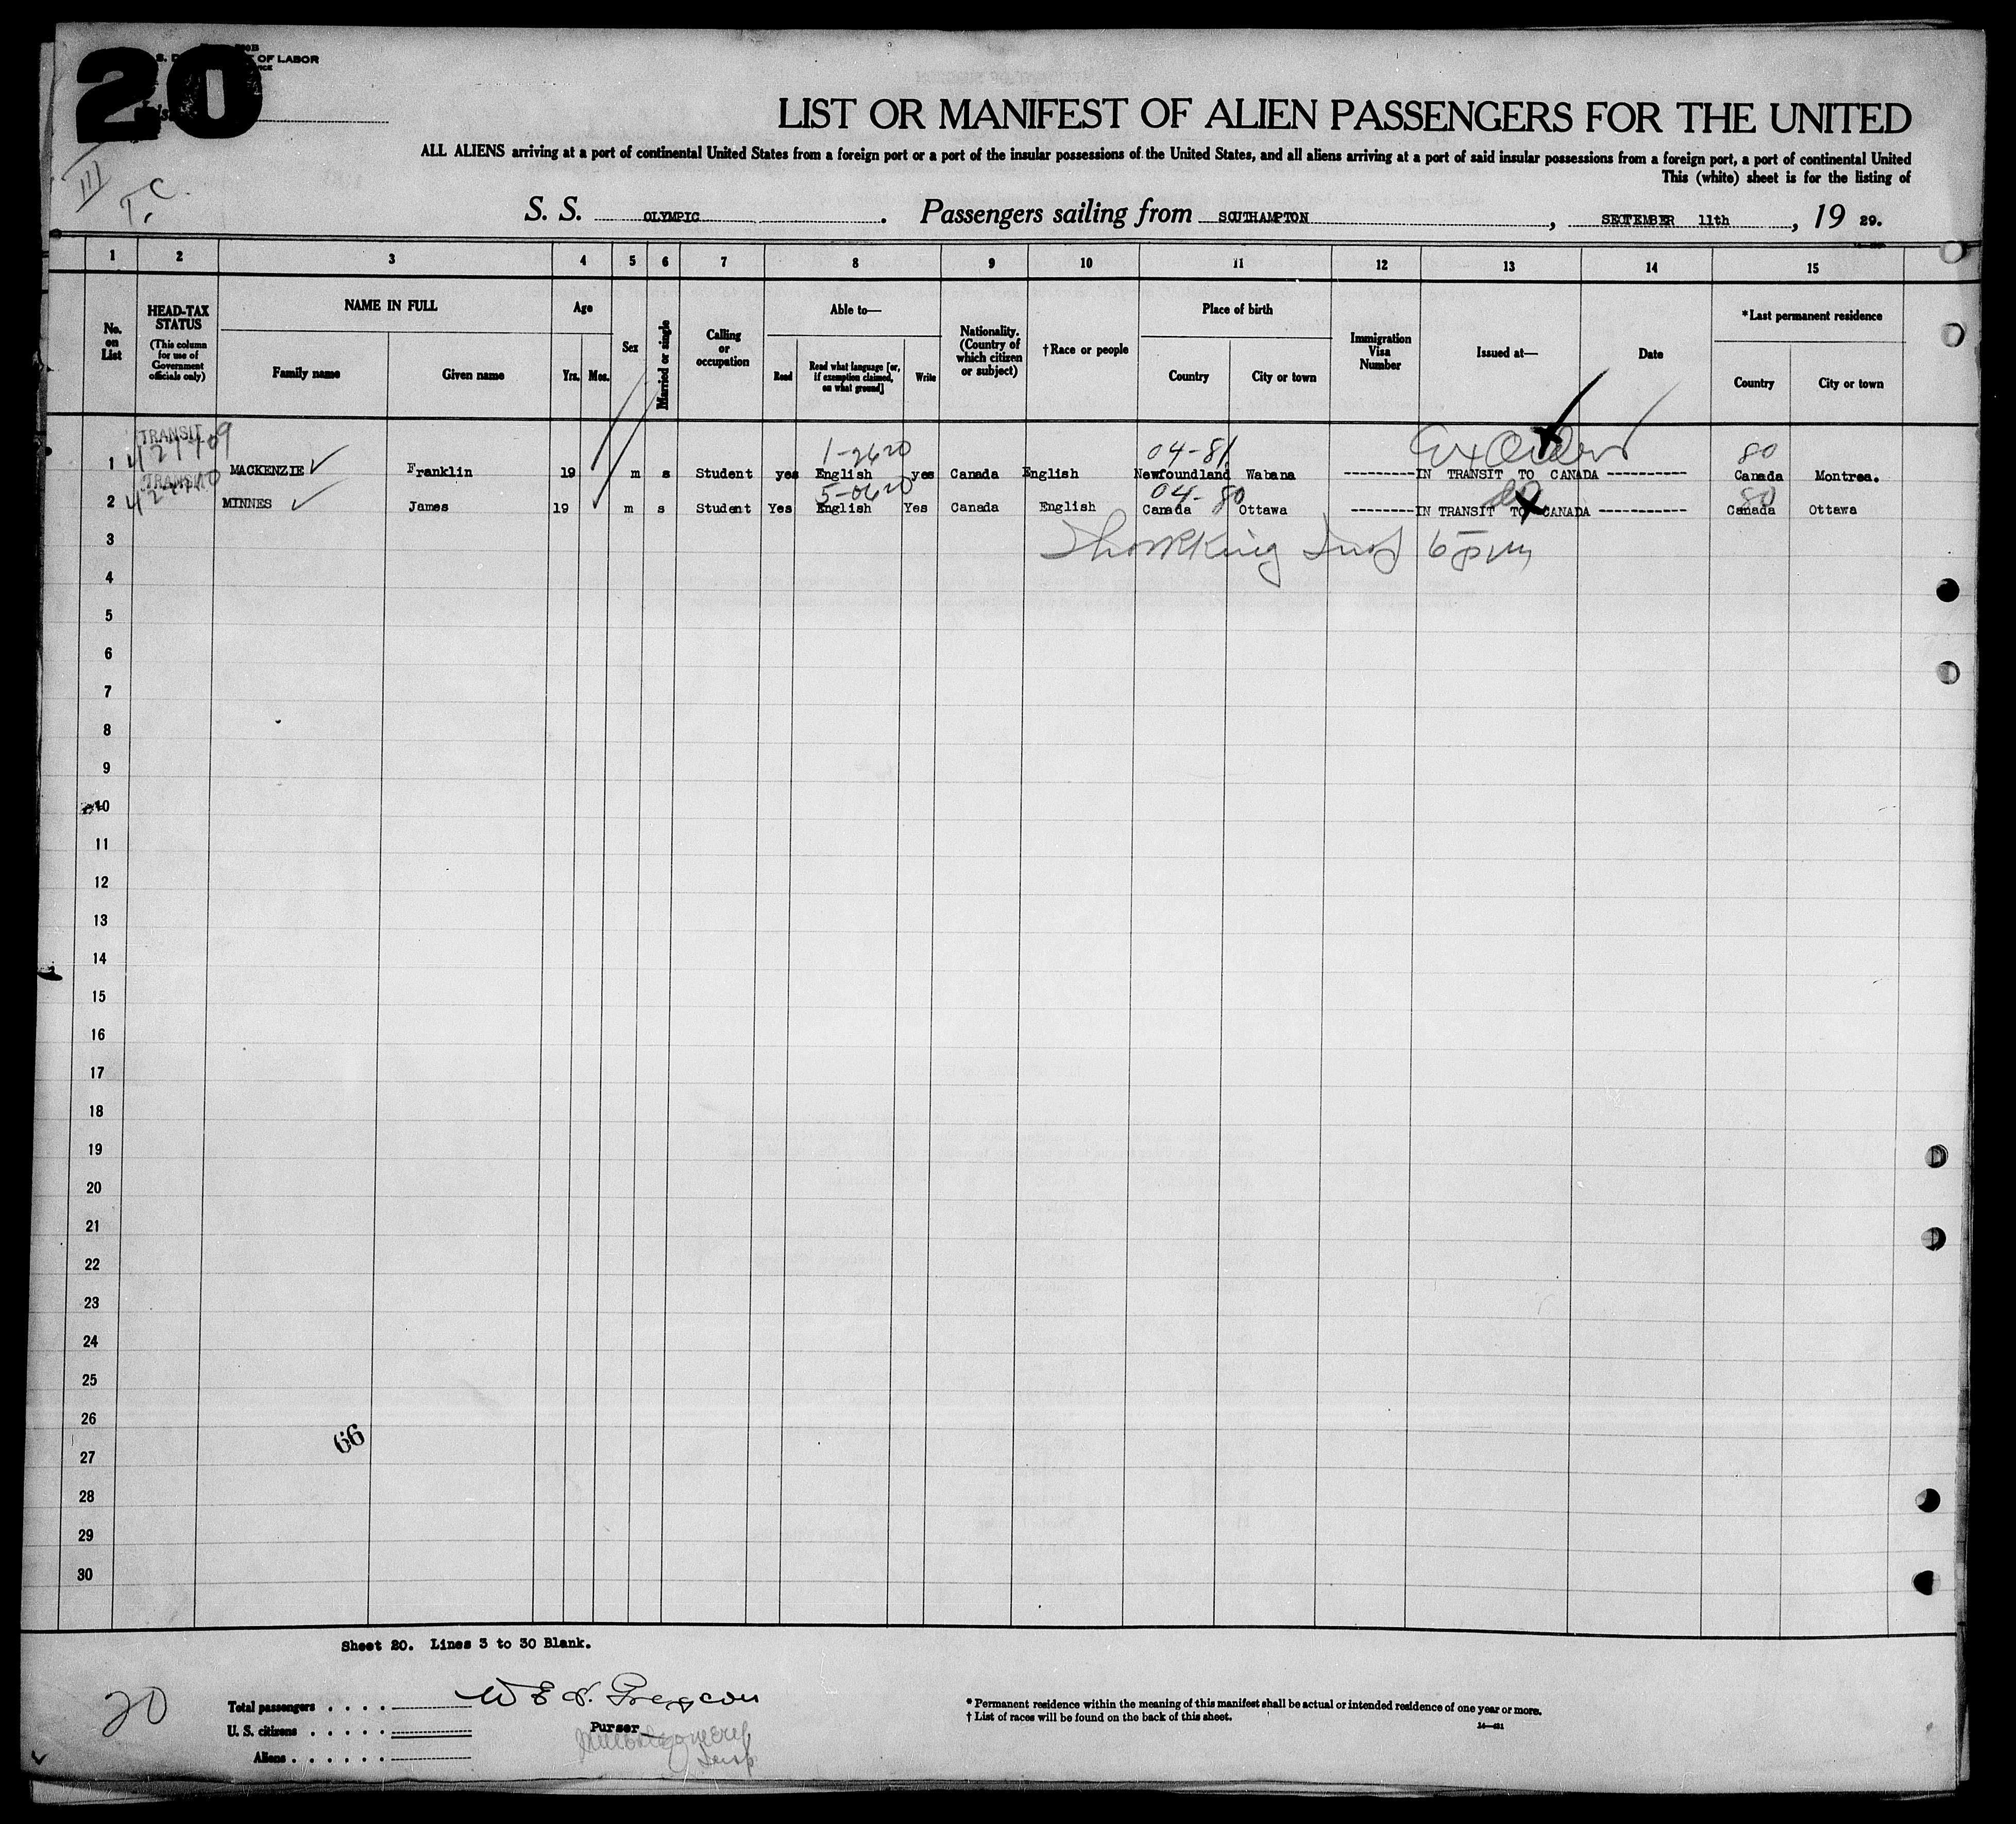 20
OF LABOR
LIST OR MANIFEST OF ALIEN PASSENGERS FOR THE UNITED
ALL ALIENS arriving at a port of continental United States from a foreign port or a port of the insular possessions of the United States, and all aliens arriving at a port of said insular possessions from a foreign port, a port of continental United
This (white) sheet is for the listing of
III
T.C.
S. S. OLYMPIC. Passengers sailing from SOUTHAMPTON, SEPTEMBER 11th, 19 29.
1 2 3 4 5 6 7 8 9 10 11 12 13 14 15
No. on List
HEAD-TAX STATUS (This column for use of Government officials only)
NAME IN FULL
Family name Given name
Age
Yrs. Mos.
Sex
Married or single
Calling or occupation
Able to—
Read
Read what language [or, if exemption claimed, on what ground]
Write
Nationality. (Country of which citizen or subject)
†Race or people
Place of birth
Country City or town
Immigration Visa Number
Issued at—
Date
*Last permanent residence
Country City or town
TRANSIT 1-2620 04-81 80
1 MACKENZIE Franklin 19 m s Student yes English yes Canada English Newfoundland Wabana ---------IN TRANSIT TO CANADA ----------- Canada Montrea.
TRANSIT 5-0620 04-80 do 80
2 MINNES James 19 m s Student Yes English Yes Canada English Canada Ottawa ---------IN TRANSIT TO CANADA ------------ Canada Ottawa
3
4
5
6
7
8
9
10
11
12
13
14
15
16
17
18
19
20
21
22
23
24
25
26
66
27
28
29
30
Sheet 20. Lines 3 to 30 Blank.
20
Total passengers . . . .
U. S. citizens . . . . .
Purser
Aliens . . . . . .
Insp
* Permanent residence within the meaning of this manifest shall be actual or intended residence of one year or more.
† List of races will be found on the back of this sheet.